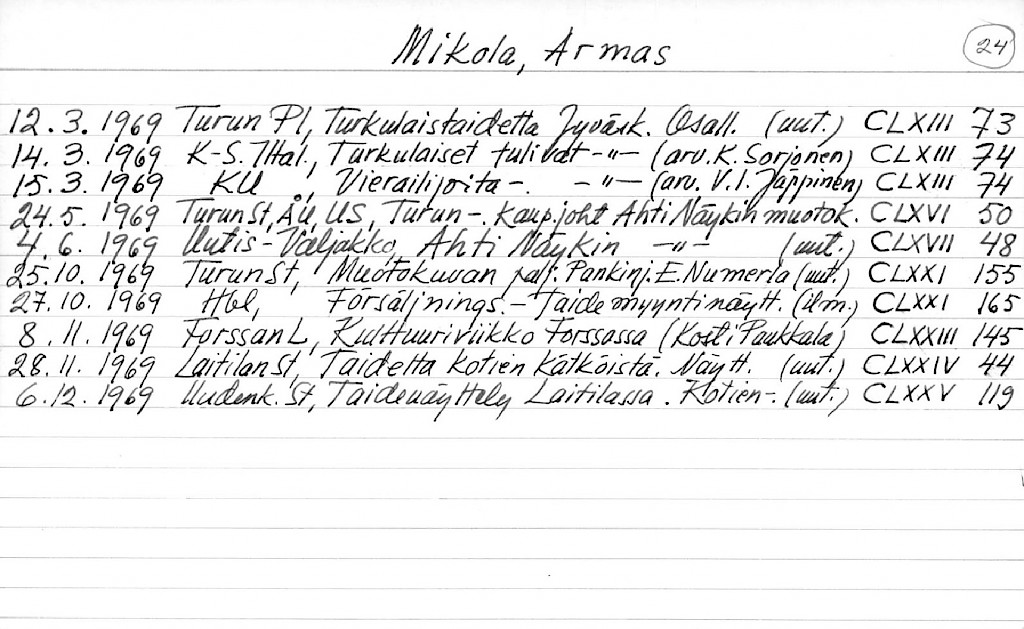 Mikola, Armas
24
12. 3. 1969 Turun Pl, Turkulaistaidetta Jyväsk. Osall. (uut.) CLXIII 73
14. 3. 1969 K-S. Iltal., Turkulaiset tulivat -"- (arv. K. Sorjonen) CLXIII 74
15. 3. 1969 KU, Vierailijoita -. -"- (arv. V.I. Jäppinen) CLXIII 74
24. 5. 1969 Turun St, ÅU, US, Turun -. kaup.joht Ahti Näykin muotok. CLXVI 50
4. 6. 1969 Uutis-Valjakko, Ahti Näykin -"- (uut.) CLXVII 48
25. 10. 1969 Turun St, Muotokuvan palj. Pankinj. E. Numerla (uut.) CLXXI 155
27. 10. 1969 Hbl, Försäljnings. - Taidemyyntinäytt. (ilm.) CLXXI 165
8. 11. 1969 Forssan L, Kulttuuriviikko Forssassa (Kosti Paukkala) CLXXIII 145
28. 11. 1969 Laitilan St, Taidetta kotien kätköistä. Näytt. (uut.) CLXXIV 44
6. 12. 1969 Uudenk. St, Taidenäyttely Laitilassa. Kotien -. (uut.) CLXXV 119